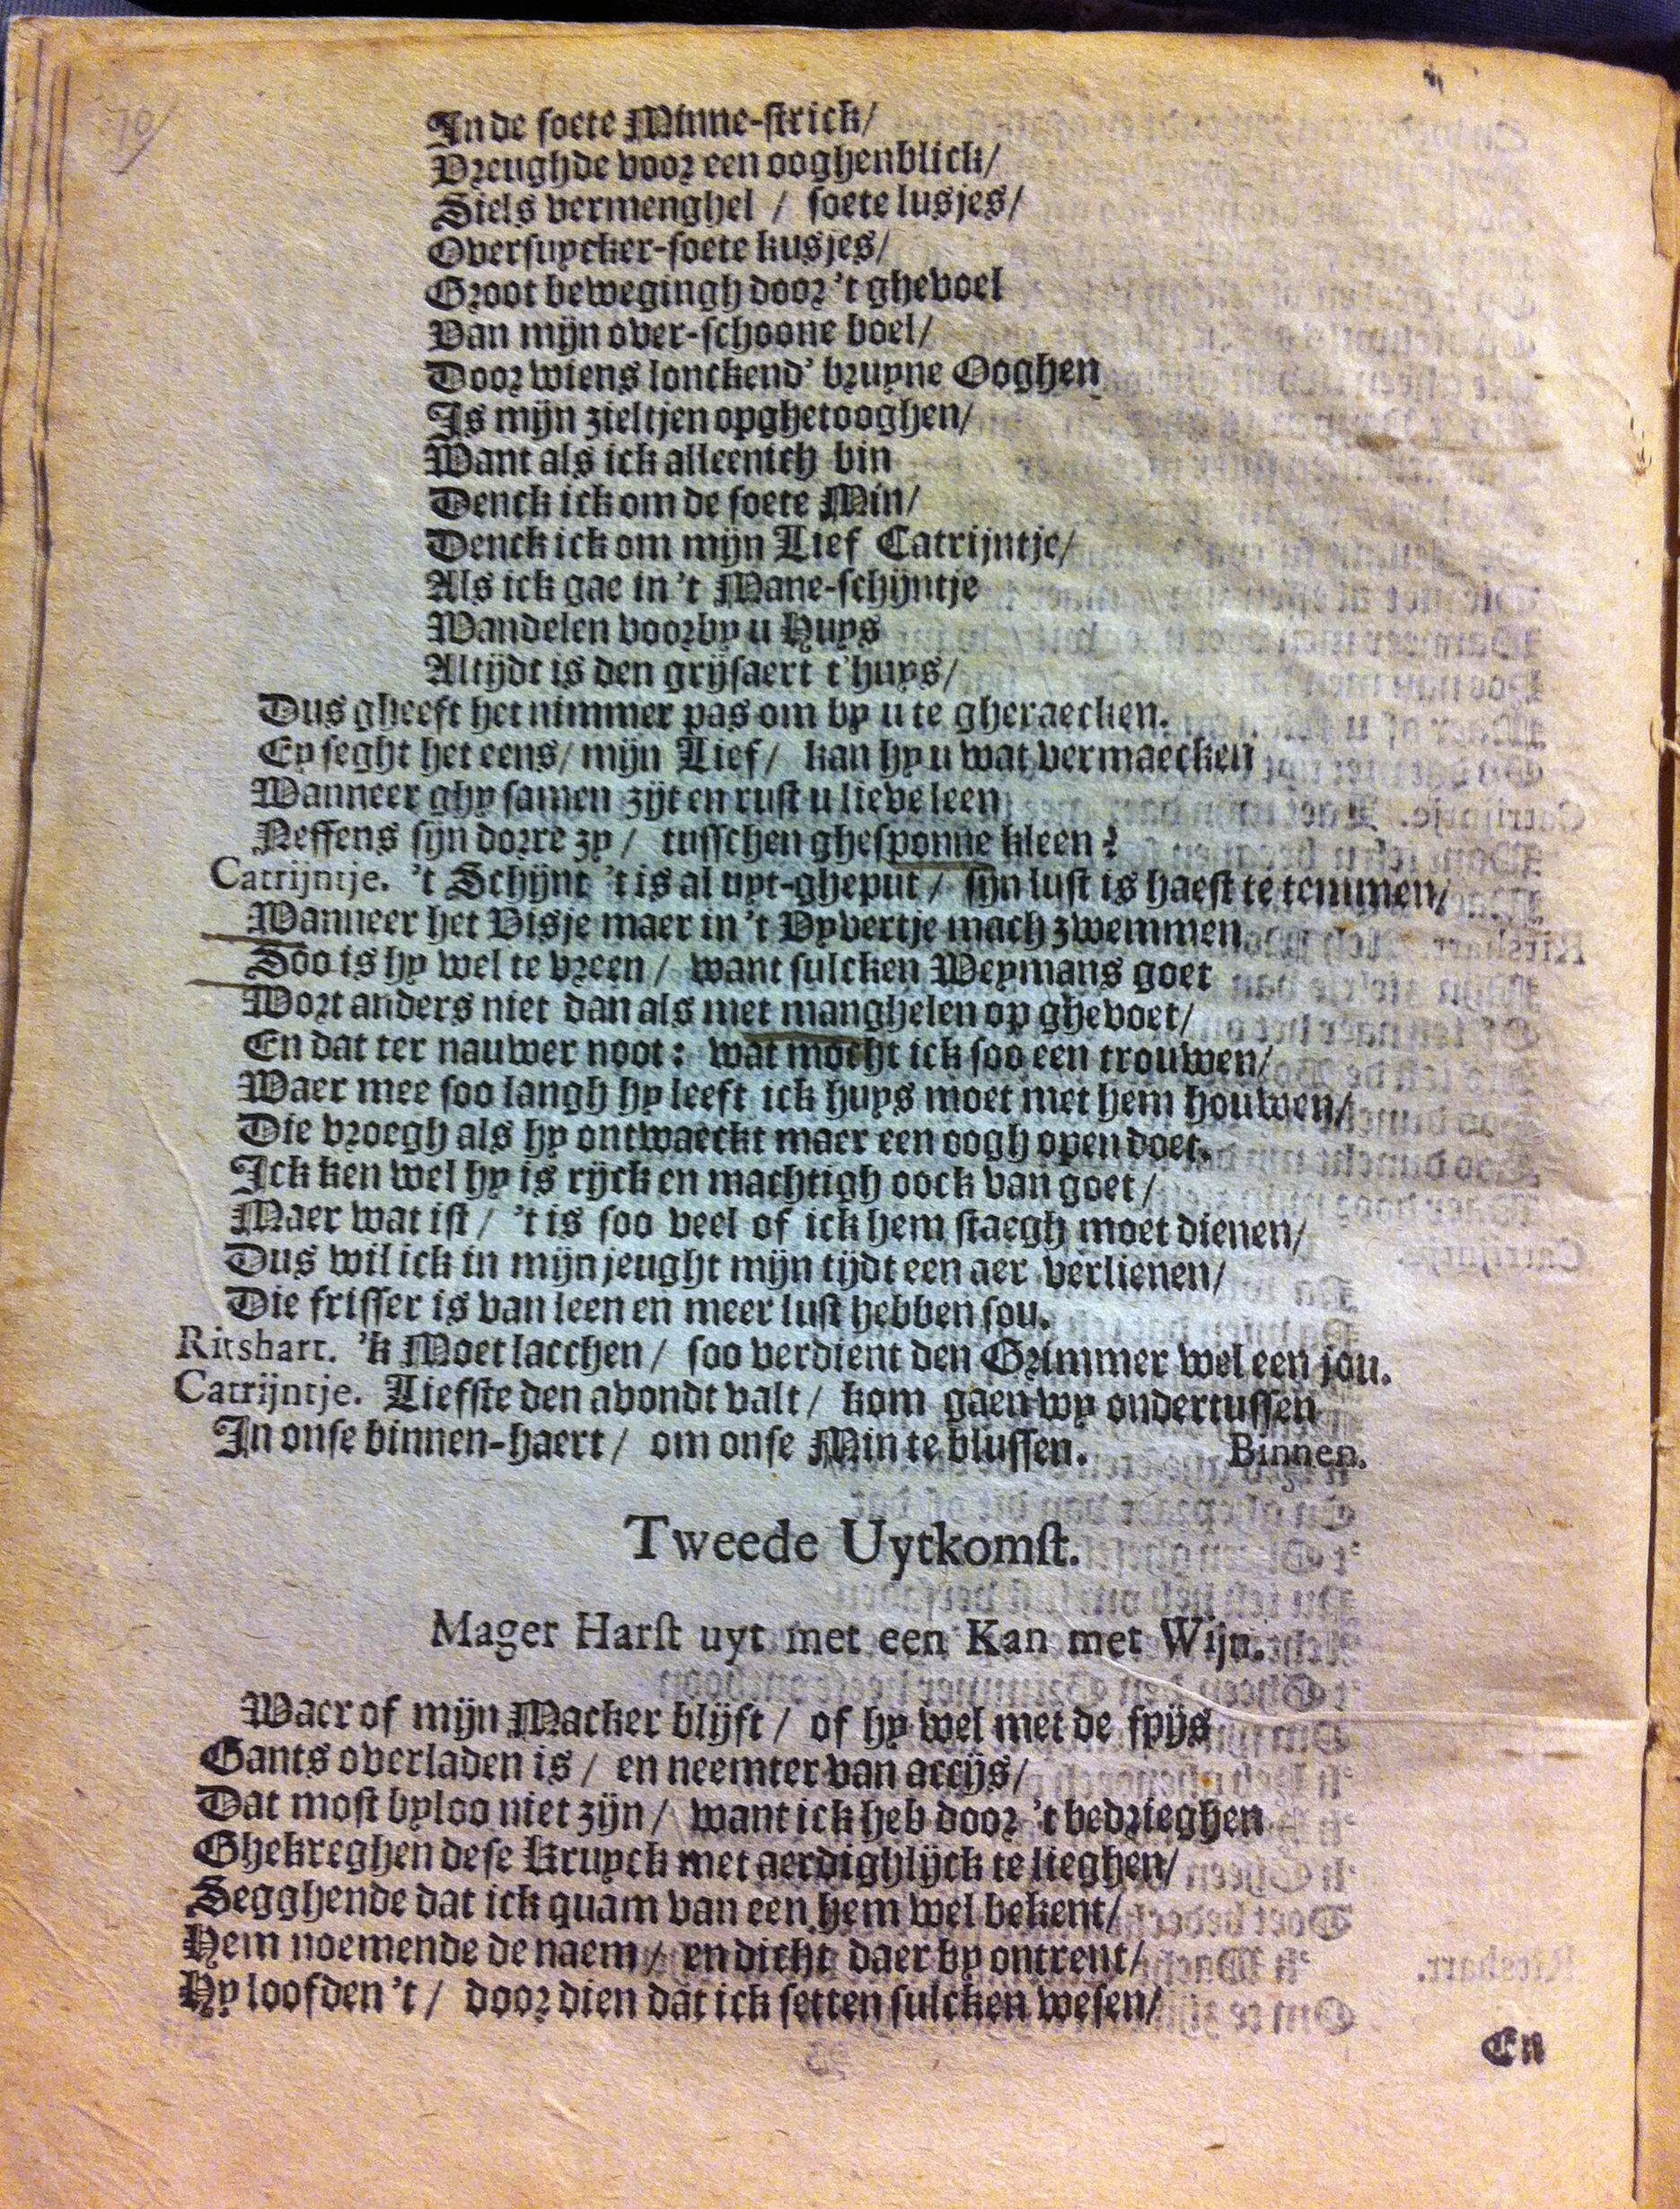 10/
In de soete Minne-strick/
Vreughde voor een ooghenblick/
Siels vermenghel / soete lusjes/
Oversuycker-soete kusjes/
Groot bewegingh door 't ghevoel
Van mijn over-schoone boel/
Door wiens lonckend' bruyne Ooghen
Is mijn zieltjen opghetooghen/
Want als ick alleenich bin
Denck ick om de soete Min/
Denck ick om mijn Lief Catrijntje/
Als ick gae in 't Mane-schijntje
Wandelen voorby u Huys
Altijdt is den grijsaert t'huys/
Dus gheeft het nimmer pas om by u te gheraecken.
Ey seght het eens/ mijn Lief/ kan hy u wat vermaecken
Wanneer ghy samen zijt en rust u lieve leen
Neffens sijn dorre zy / tusschen ghesponne kleen?
Catrijntje. 't Schijnt 't is al uyt-gheput / sijn lust is haest te temmen/
Wanneer het Visje maer in 't Vyvertje mach zwemmen
Soo is hy wel te vreen / want sulcken Weymans goet
Wort anders niet dan als met manghelen op ghevoet/
En dat ter nauwer noot: wat mocht ick soo een trouwen/
Waer mee soo langh hy leeft ick huys moet met hem houwen/
Die vroegh als hy ontwaeckt maer een oogh open doet.
Ick ken wel hy is rijck en machtigh oock van goet/
Maer wat ist / 't is soo veel of ick hem staegh moet dienen/
Dus wil ick in mijn jeught mijn tijdt een aer verlienen/
Die frisser is van leen en meer lust hebben sou.
Ritshart. 'k Moet lacchen / soo verdient den Grimmer wel een jou.
Catrijntje. Liefste den avondt valt / kom gaen wy ondertussen
In onse binnen-haert / om onse Min te blussen. Binnen.
Tweede Uytkomst.
Mager Harst uyt met een Kan met Wijn.
Waer of mijn Macker blijft / of hy wel met de spijs
Gants overladen is / en neemter van accijs/
Dat most byloo niet zijn / want ick heb door 't bedrieghen
Ghekreghen dese Kruyck met aerdighlijck te lieghen/
Segghende dat ick quam van een hem wel bekent/
Hem noemende de naem / en dicht daer by ontrent/
Hy loofden 't / door dien dat ick setten sulcken wesen/
En